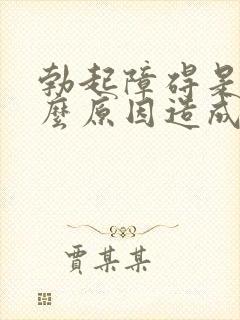 勃起障碍是
麼原因造成
賈某某